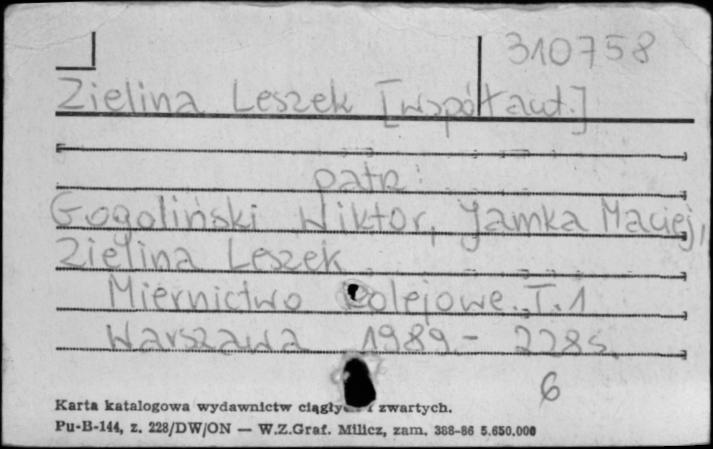 310758
Zielina Leszek [współaut.]
patrz:
Gogoliński Wiktor, Jamka Maciej,
Zielina Leszek
Miernictwo kolejowe. T.1
Warszawa 1989.- 228s.
6
Karta katalogowa wydawnictw ciągłych i zwartych.
Pu-B-144, z. 228/DW/ON — W.Z.Graf. Milicz, zam. 388-86 5.650.000